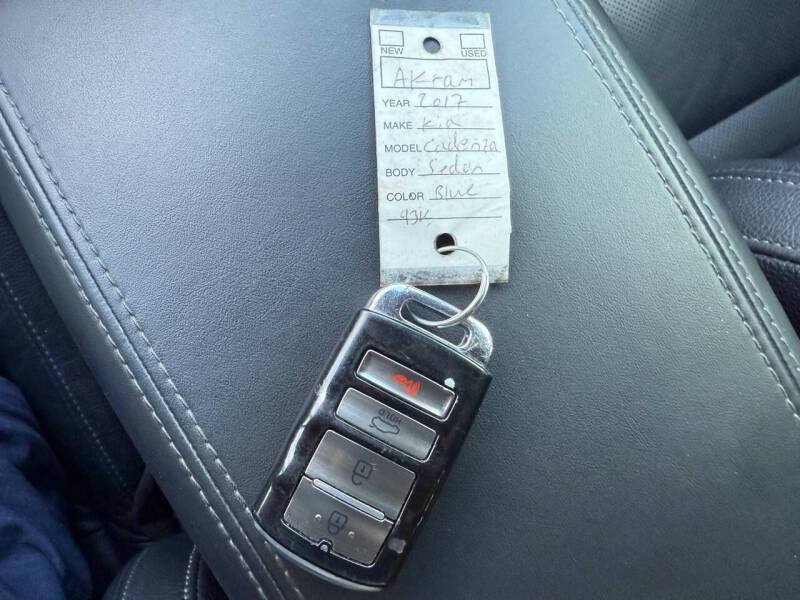 NEW USED
AKram
YEAR 2017
MAKE Kia
MODEL Cadenza
BODY Sedan
COLOR Blue
93K
HOLD